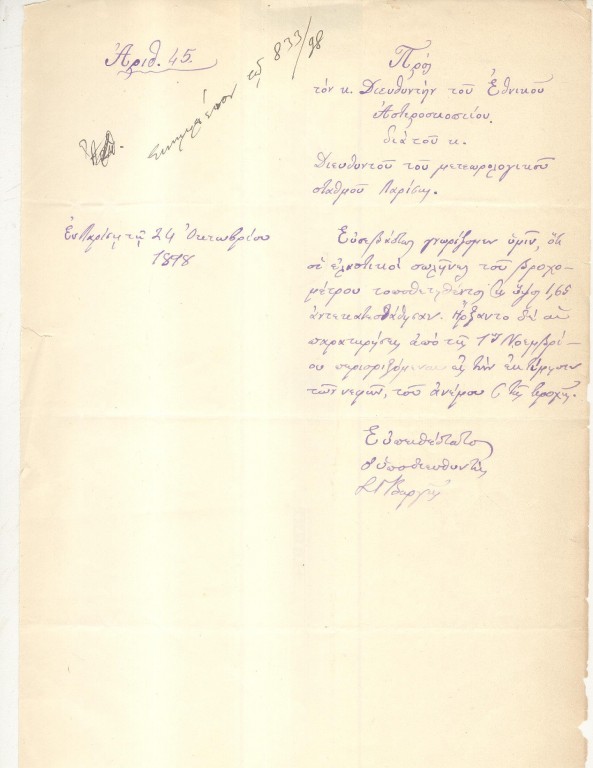 Ἀριθ. 45.
συνημμένον τῷ 833/98
Πρὸς
τὸν κ. Διευθυντὴν τοῦ Ἐθνικοῦ
Ἀστεροσκοπείου.
διὰ τοῦ κ.
Διευθυντοῦ τοῦ μετεωρολογικοῦ
σταθμοῦ Λαρίσης.
Ἐν Λαρίσῃ τῇ 24 Ὀκτωβρίου
1898
Εὐσεβάστως γνωρίζομεν ὑμῖν, ὅτι
οἱ ἐλαστικοὶ σωλῆνες τοῦ βροχο-
μέτρου τοποθετηθέντος εἰς ὕψος 1,65
ἀντεκατεστάθησαν. Ἤρξαντο δὲ αἱ
παρατηρήσεις ἀπὸ τῆς 1ης Νοεμβρί-
ου περιοριζόμεναι εἰς τὴν ἐκτίμησιν
τῶν νεφῶν, τοῦ ἀνέμου καὶ τῆς βροχῆς.
Εὐπειθέστατος
ὁ ὑποδιευθυντὴς